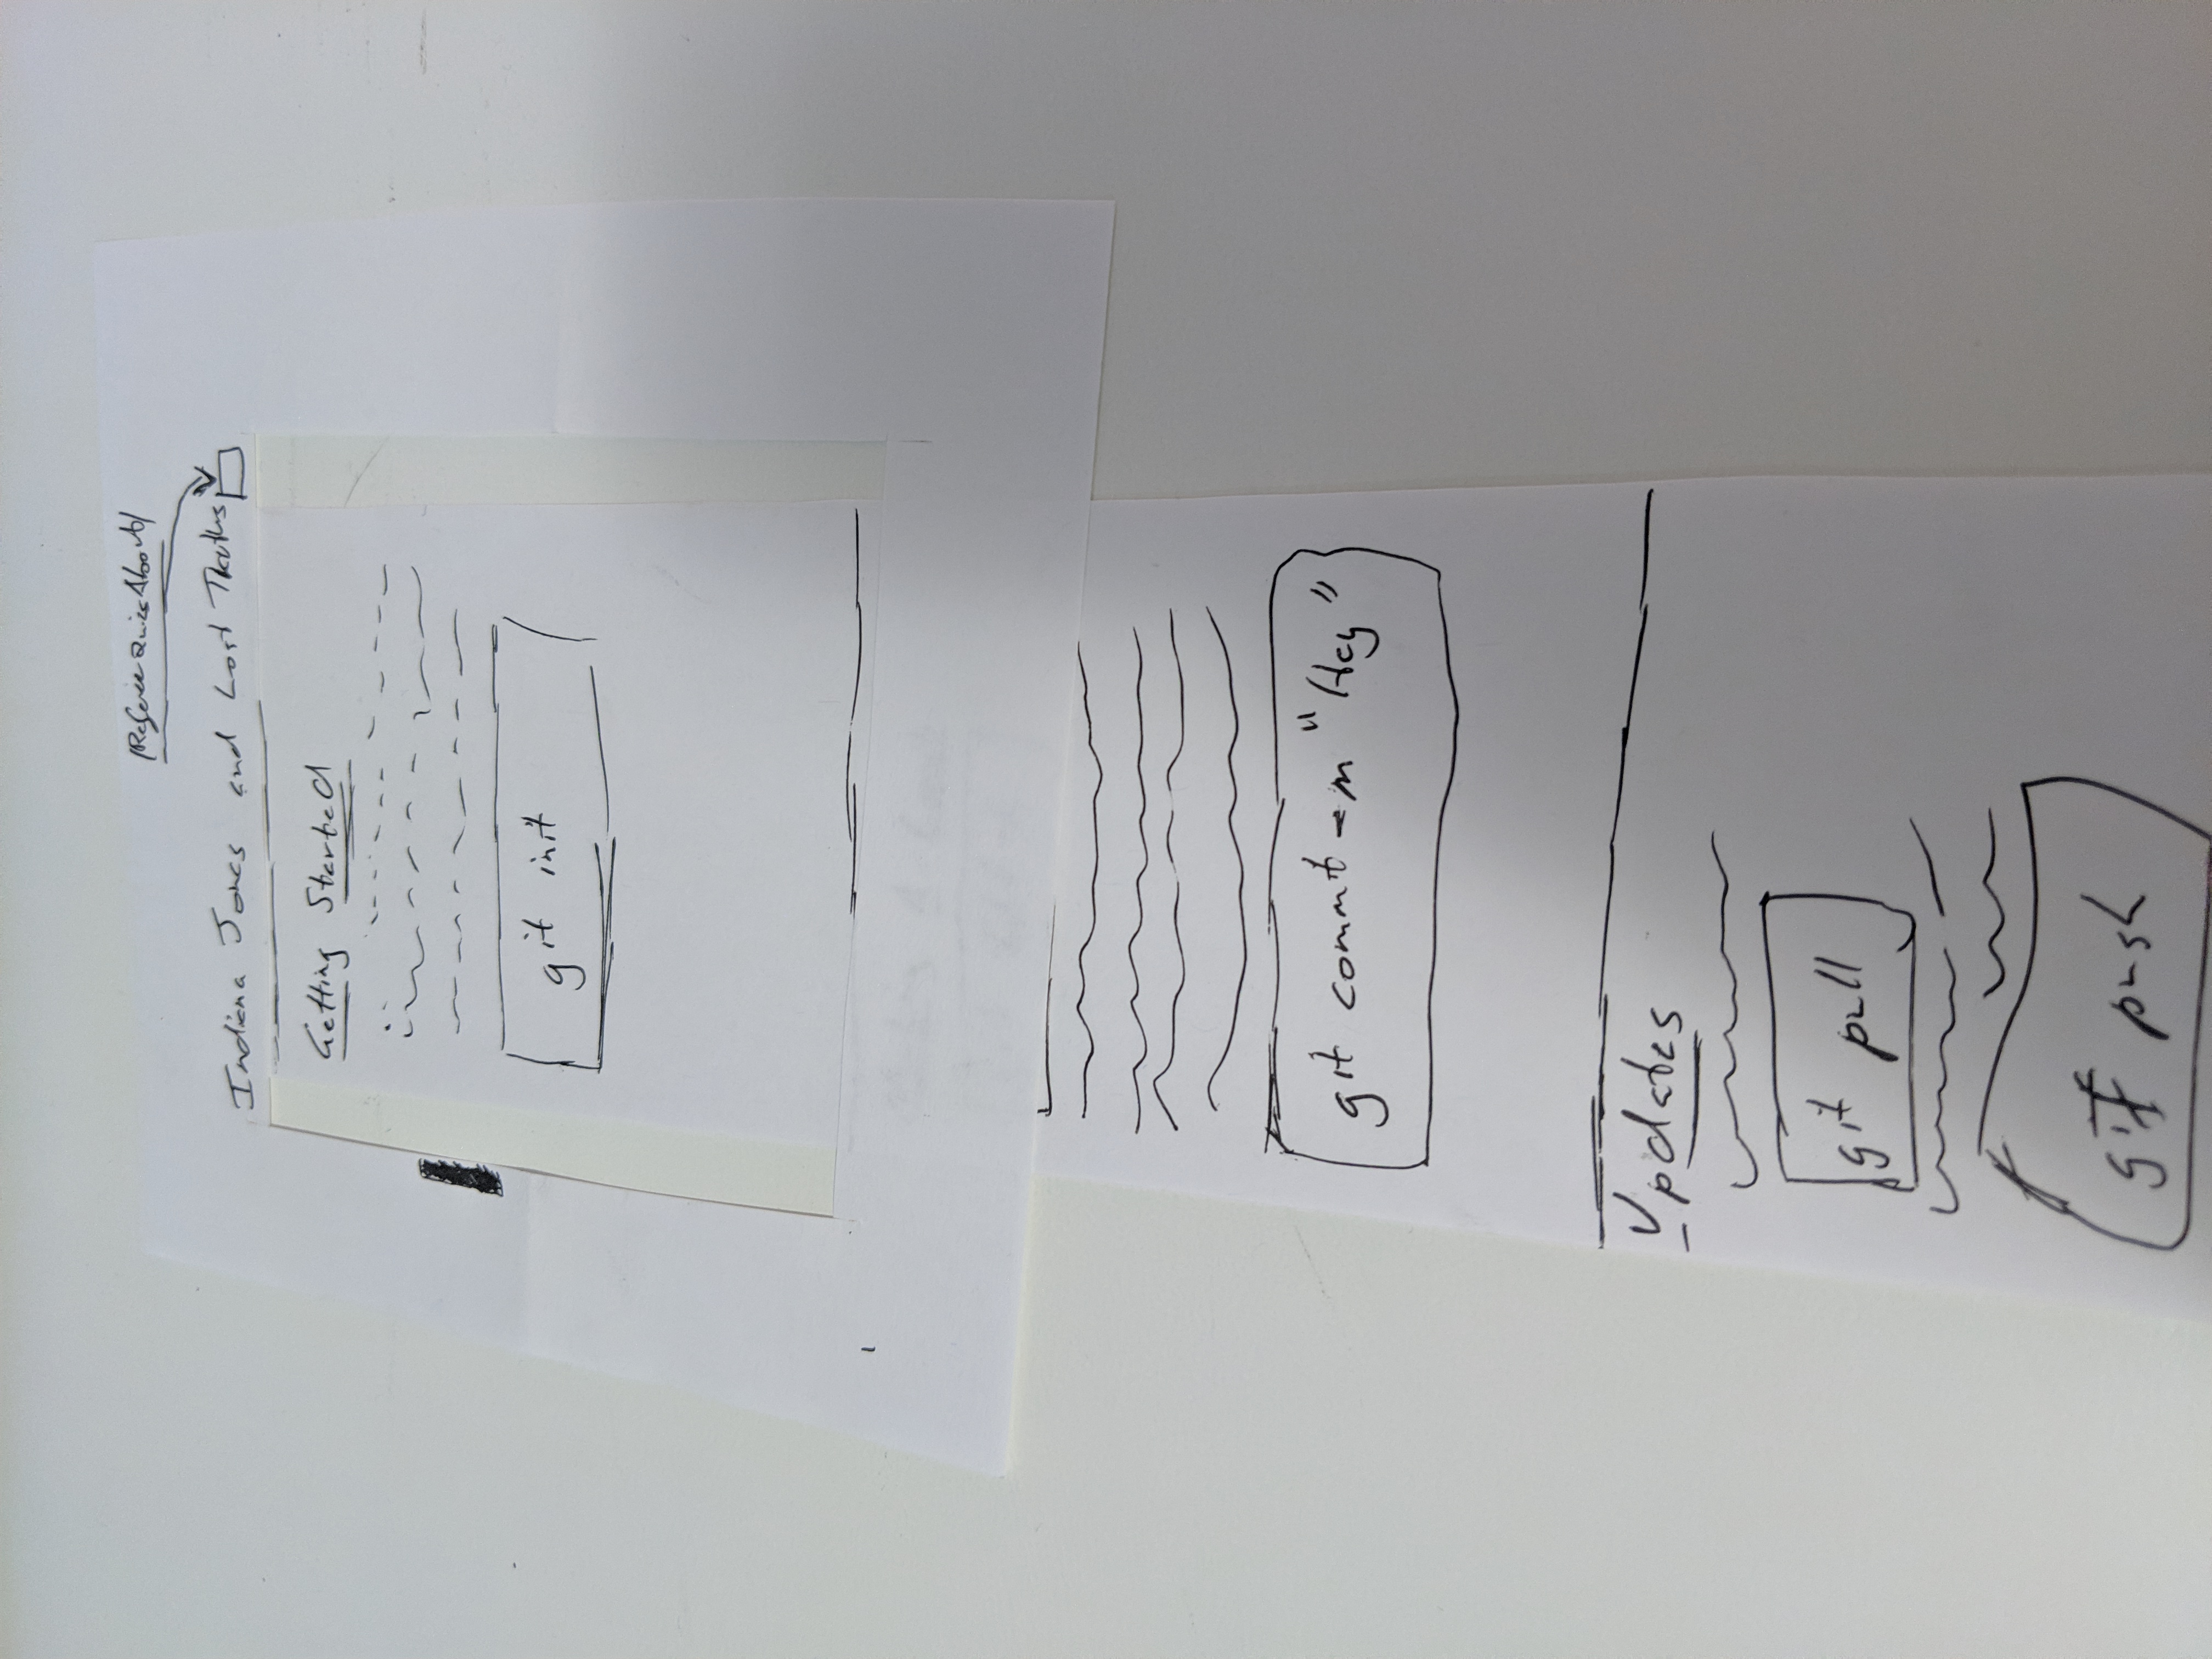 Indiana Jones and Lost Thuths
Getting Started
git init
git commit -m "Hey"
Updates
git pull
git push